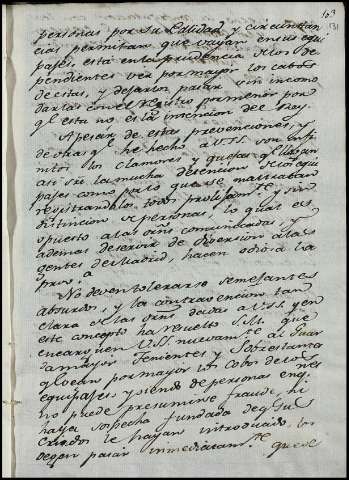 103
131
personas por su Calidad, y circunstan
cias permitan que vayan en sus equi
pages, está en la prudencia de los De
pendientes ver por mayor los cabos
de estas, y dejarlos pasar sin incomo
darlas con el registro por menor por
q.l esta no es la intencion del Rey.
Apesar de estas prevenciones, y
de otras q.l he hecho a V.SS. son infi
nitos los clamores y quejas q.l llegan
asi de la mucha detencion de los equi
pages como por lo que se maltratan
registrandolos todos prolijam.te y sin
distincion de personas, lo qual es
opuesto a las orñs comunicadas, y
ademas de servir de diversion a las
gentes de Madrid, hacen odiosa la
Prov.a
No deven tolerarse semejantes
absurdos, y la contravencion tan
clara de las orñs dadas a V.SS. y en
este concepto ha resuelto S.M. que
encarguen V.SS. nuevam.te al Guar
da mayor Tenientes y Sobrestante
q.l vean por mayor los cabos de los
equipages y siendo de personas en q.n
no puede presumirse fraude, ni
haya sospecha fundada de q.l sus
Criados le hayan introducido, los
degen pasar inmediatam.te que de